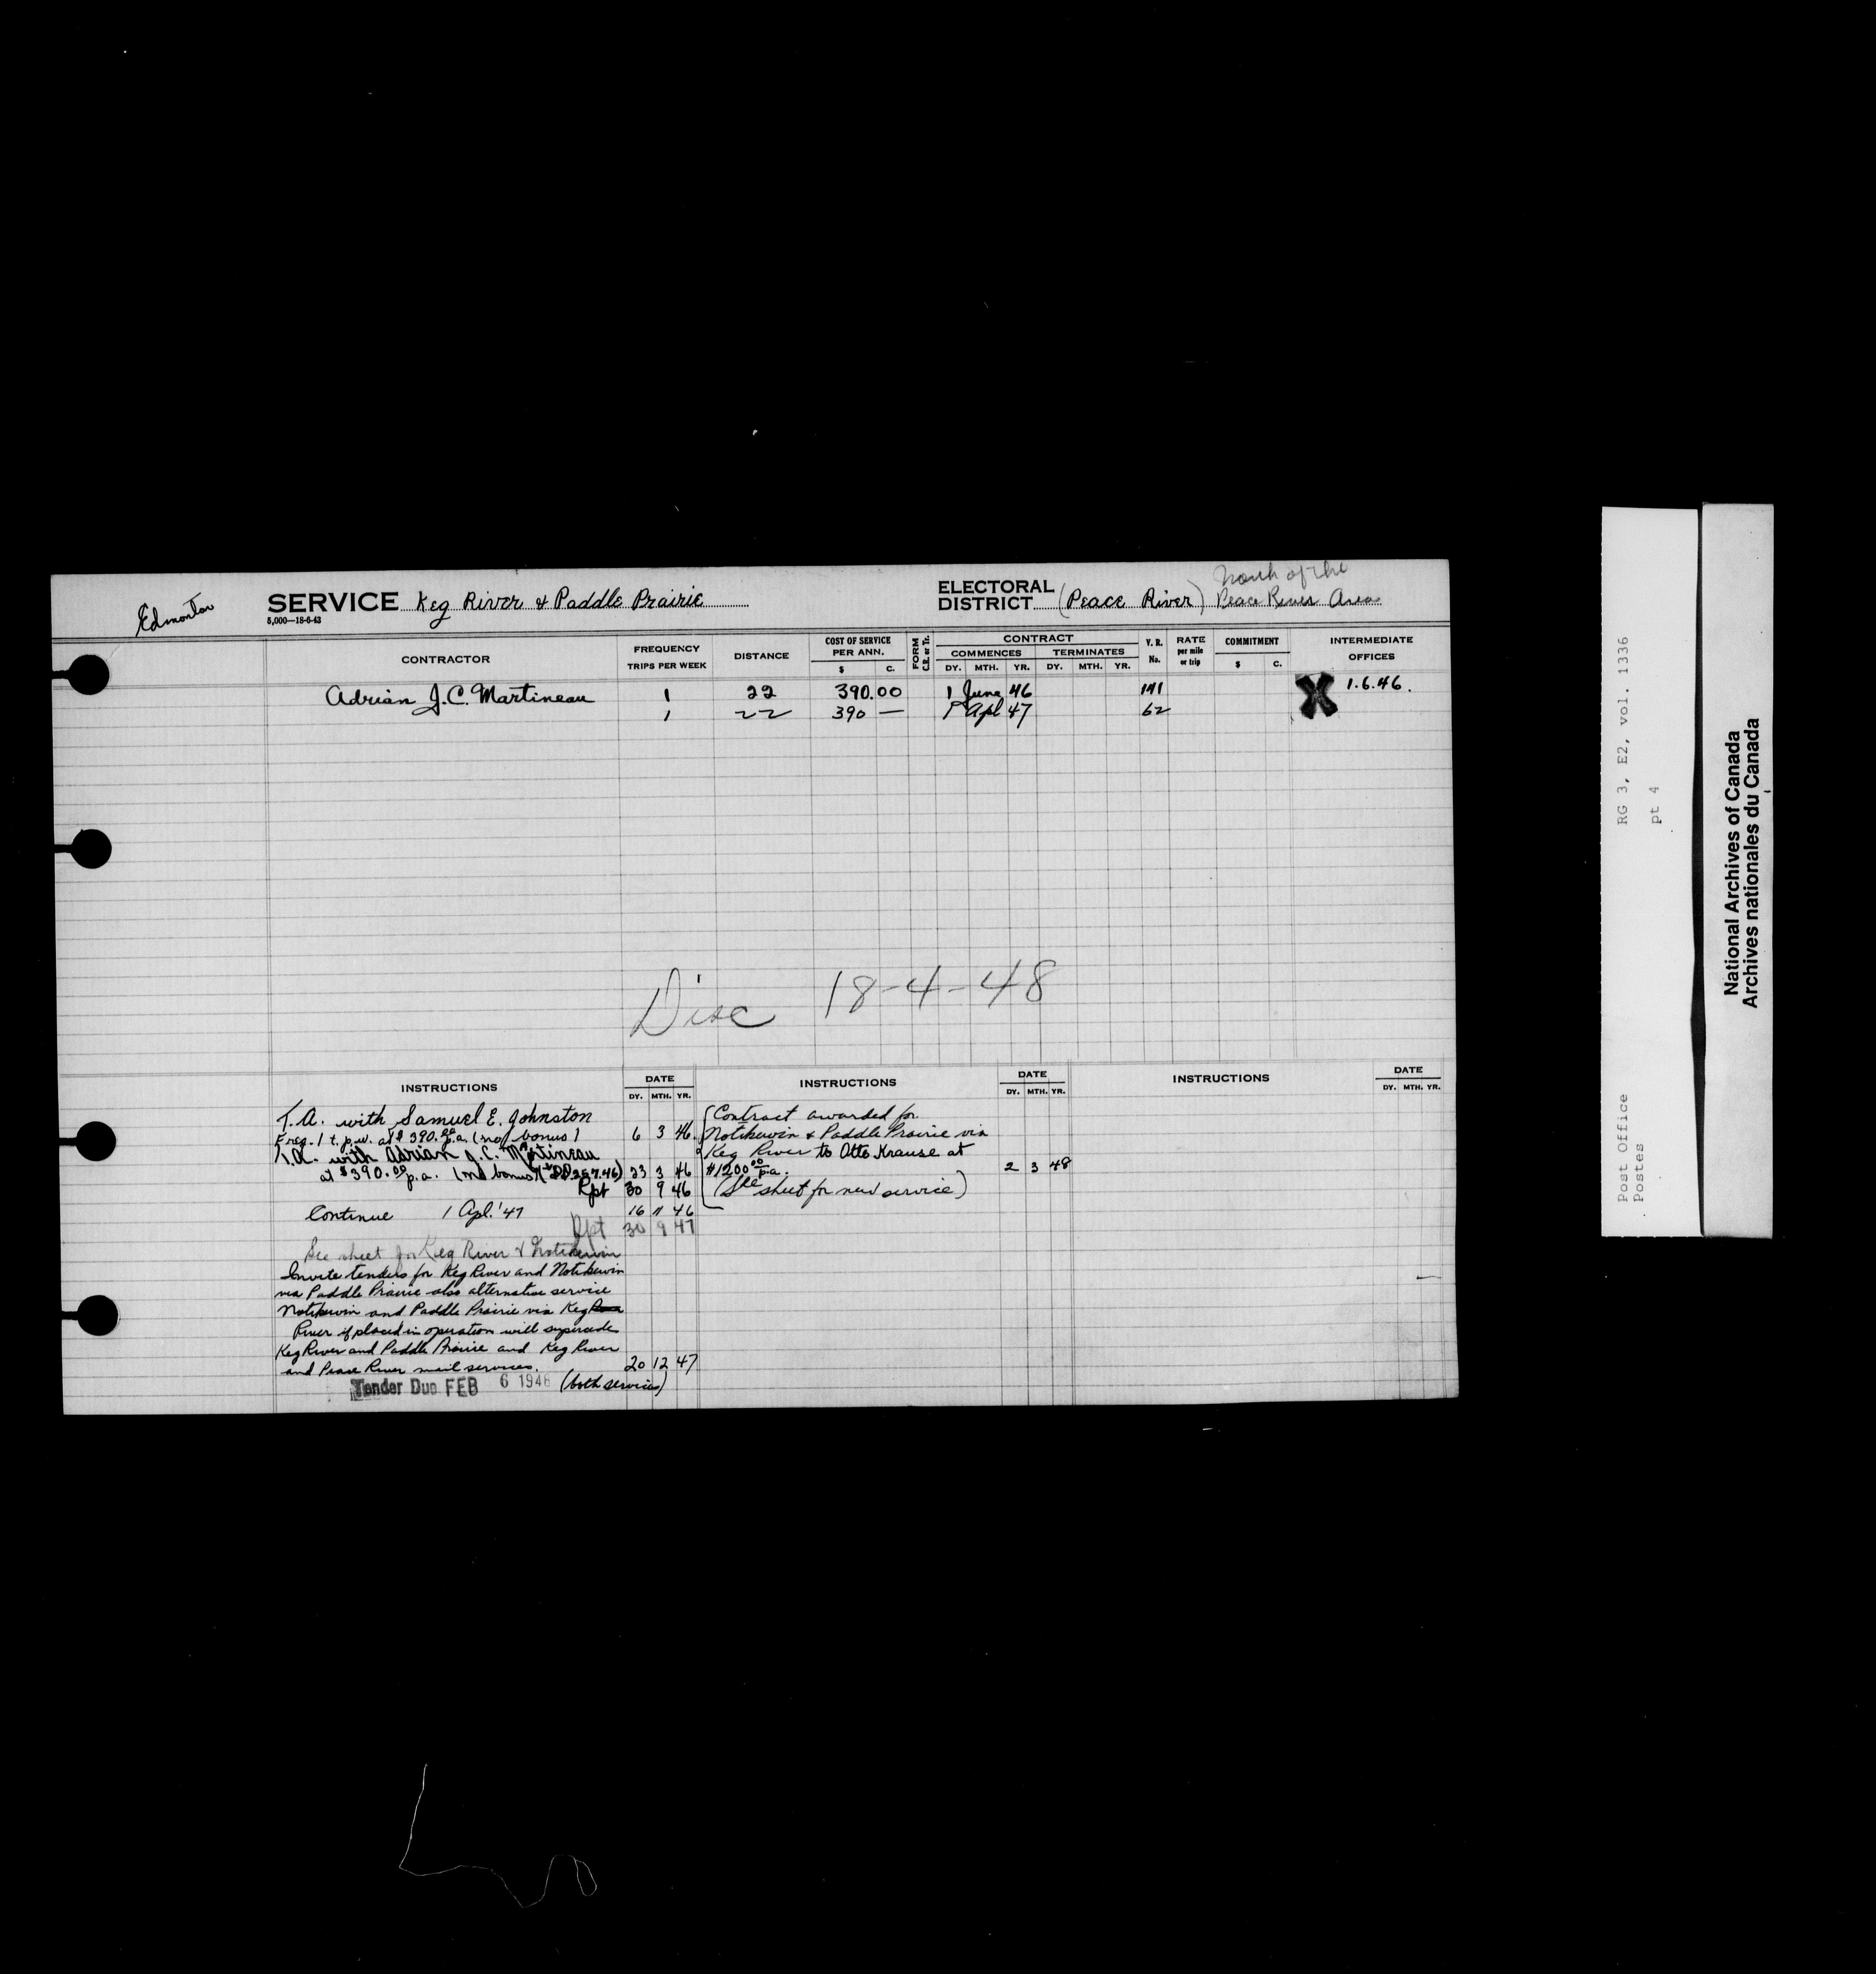 Edmonton
SERVICE Keg River & Paddle Prairie
5,000—18-6-43
ELECTORAL DISTRICT (Peace River) North of the
Peace River Area
CONTRACTOR
FREQUENCY
TRIPS PER WEEK
DISTANCE
COST OF SERVICE
PER ANN.
$ C.
FORM
C.R. or Tr.
CONTRACT
COMMENCES TERMINATES
DY. MTH. YR. DY. MTH. YR.
V. R.
No.
RATE
per mile
or trip
COMMITMENT
$ C.
INTERMEDIATE
OFFICES
Adrian J.C. Martineau 1 22 390.00 1 June 46 141 X 1.6.46.
1 22 390 — 1 Apl 47 62
Disc 18-4-48
INSTRUCTIONS DATE
DY. MTH. YR.
T.A. with Samuel E. Johnston
Freq. 1 t.p.w. at $390.00 p.a. (no bonus) 6 3 46
T.A. with Adrian J.C. Martineau
at $390.00 p.a. (no bonus) 25.7.46) 23 3 46
Rpt 30 9 46
Continue 1 Apl. '47 16 11 46
Rpt 30 9 47
See sheet for Keg River & Notikewin
Invite tenders for Keg River and Notikewin
via Paddle Prairie also alternative service
Notikewin and Paddle Prairie via Keg
River if placed in operation will supercede
Keg River and Paddle Prairie and Keg River
and Peace River mail services. 20 12 47
Tender Due FEB 6 1948 (both services)
INSTRUCTIONS DATE
DY. MTH. YR.
Contract awarded for
Notikewin & Paddle Prairie via
Keg River to Otto Krause at
$1200.00 p.a. 2 3 48
(See sheet for new service)
INSTRUCTIONS DATE
DY. MTH. YR.
RG 3, E2, vol. 1336
pt 4
Post Office
Postes
National Archives of Canada
Archives nationales du Canada